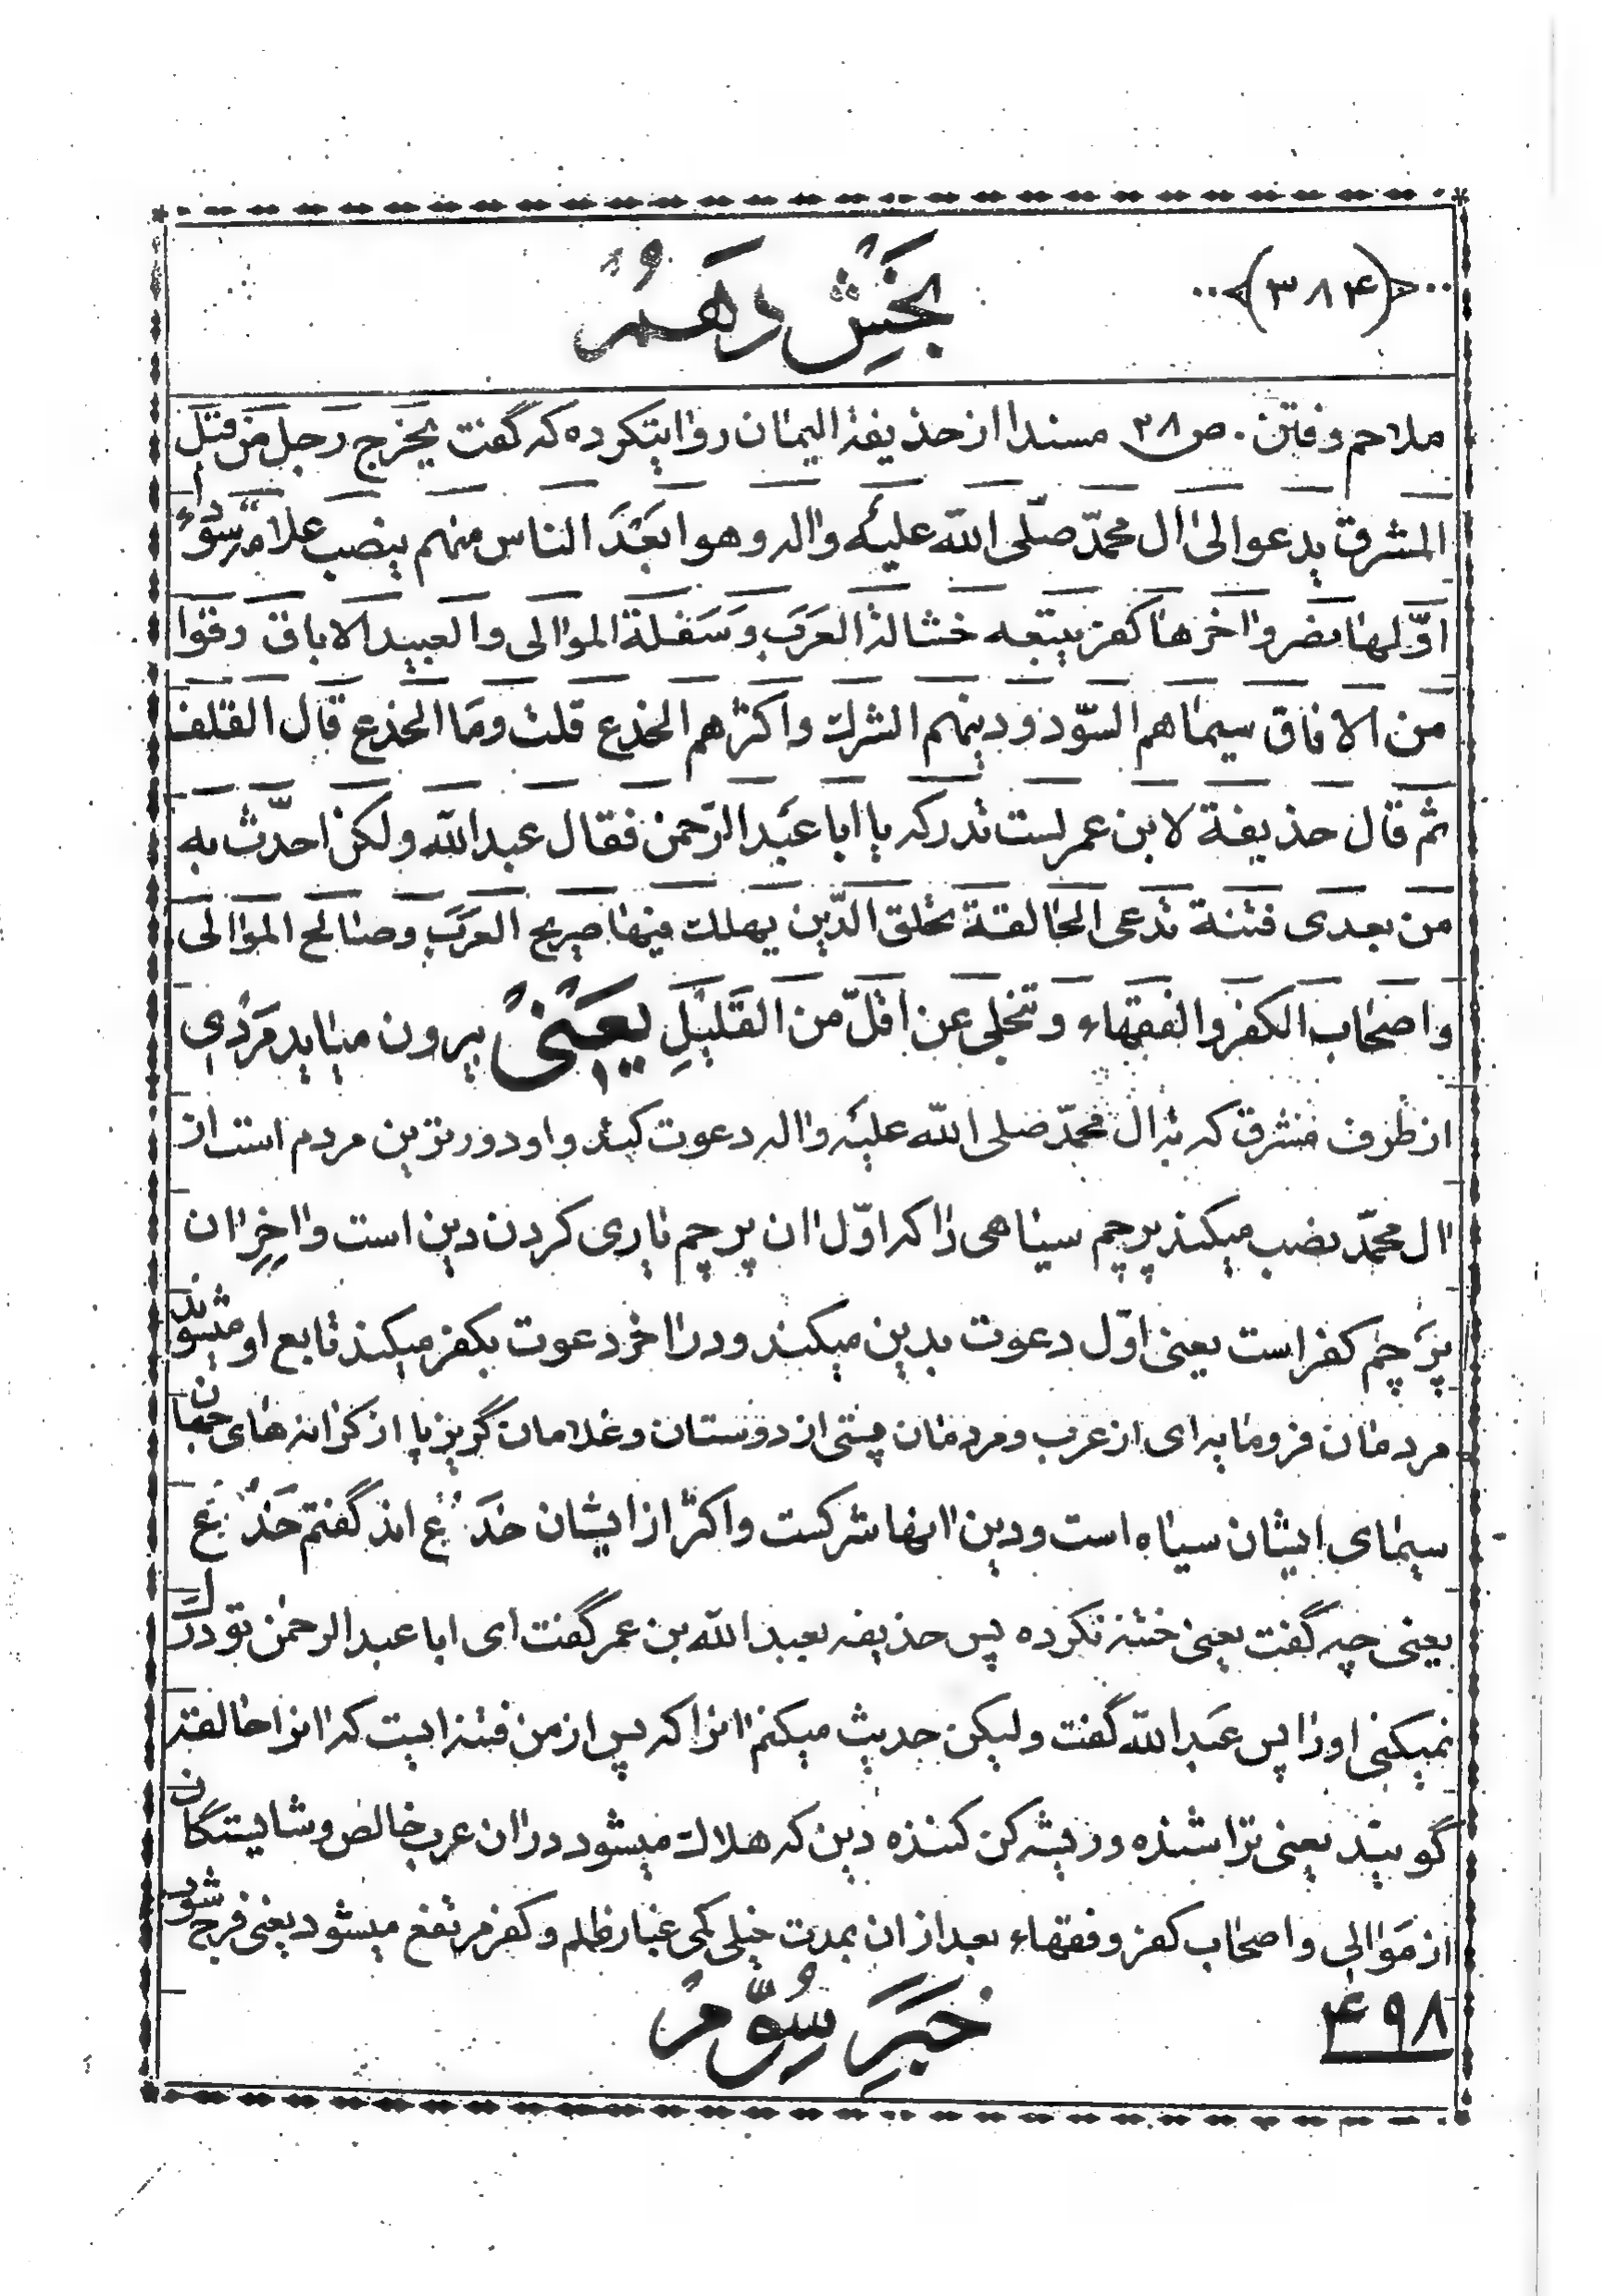 (۳۸۴)
بخش دهم
ملاحم وفتن . ص۲۸ مسندا از حذیفة الیمان روایتکرده که گفت یخرج رجل من قبل
المشرق یدعوا لی ال محمّد صلّی اللّه علیه واله وهو ابعد الناس منهم ینصب علامة سوداء
اوّلها نصر واخرها کفر یتبعه خشالة العرب وسفلة الموالی والعبید الاباق
من الافاق سیماهم السّود ودینهم الشرک واکثرهم الخدع قلت وما الخدع قال القلف
ثم قال حذیفة لابن عمر لست تدرکه یا ابا عبد الرّحمن فقال عبد اللّه ولکن احدّث به
من بعدی فتنة تدعی الحالقة تحلق الدّین یهلک فیها صریح العرب وصالح الموالی
واصحاب الکفر والفقهاء وتنجلی عن اقلّ من القلیل یعنی بیرون میاید مردی
از طرف مشرق که به ال محمّد صلی اللّه علیه واله دعوت کند و او دورترین مردم است از
ال محمّد نصب میکند پرچم سیاهی را که اوّل ان پرچم یاری کردن دین است واخر ان
پرچم کفر است یعنی اوّل دعوت بدین میکند ودر اخر دعوت بکفر میکند تابع او میشوند
مردمان فرومایه ای از عرب و مردمان پستی از دوستان و غلامان گریزپا از کرانه های جهان
سیمای ایشان سیاه است ودین انها شرکست واکثر از ایشان خدع اند گفتم خدع
یعنی چه گفت یعنی ختنه نکرده پس حذیفه بعبد اللّه بن عمر گفت ای ابا عبد الرحمن تو درک
نمیکنی او را پس عبد اللّه گفت ولیکن حدیث میکنم انرا که پس از من فتنه ایست که انرا حالقه
گویند یعنی تراشنده وریشه کن کننده دین که هلاک میشود در ان عرب خالص وشایستگان
از موالی واصحاب کفر وفقهاء بعد از ان بمدت خیلی کمی غبار ظلم وکفر مرتفع میشود یعنی فرج شود
۴۹۸ خبر سوّم